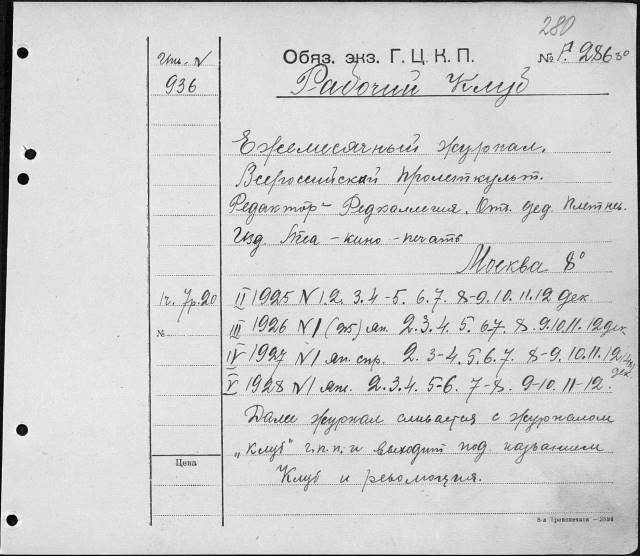 280
Инв. N
936
Обяз. экз. Г.Ц.К.П.
№ 286 8°
Рабочий Клуб
Ежемесячный журнал.
Всероссийский пролеткульт.
Редактор - Редколлегия. Отв. ред. Плетнев.
Изд. Теа - кино - печать
Москва 8°
1г. 7р.20
II 1925 N 1. 2. 3. 4-5. 6. 7. 8-9. 10. 11. 12 дек.
№
III 1926 N 1 (25) ян. 2. 3. 4. 5. 6. 7. 8. 9. 10. 11. 12 дек
IV 1927 N 1 ян. 2. 3-4. 5. 6. 7. 8-9. 10. 11. 12 дек
V 1928 N 1 янв. 2. 3. 4. 5-6. 7-8. 9-10. 11-12.
Далее журнал сливается с журналом
„Клуб" и выходит под названием
Цена
Клуб и революция.